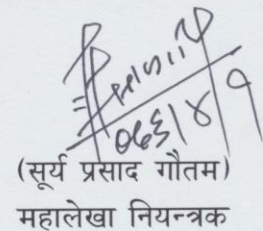 ०६६/४/१
(सूर्य प्रसाद गौतम)
महालेखा नियन्त्रक